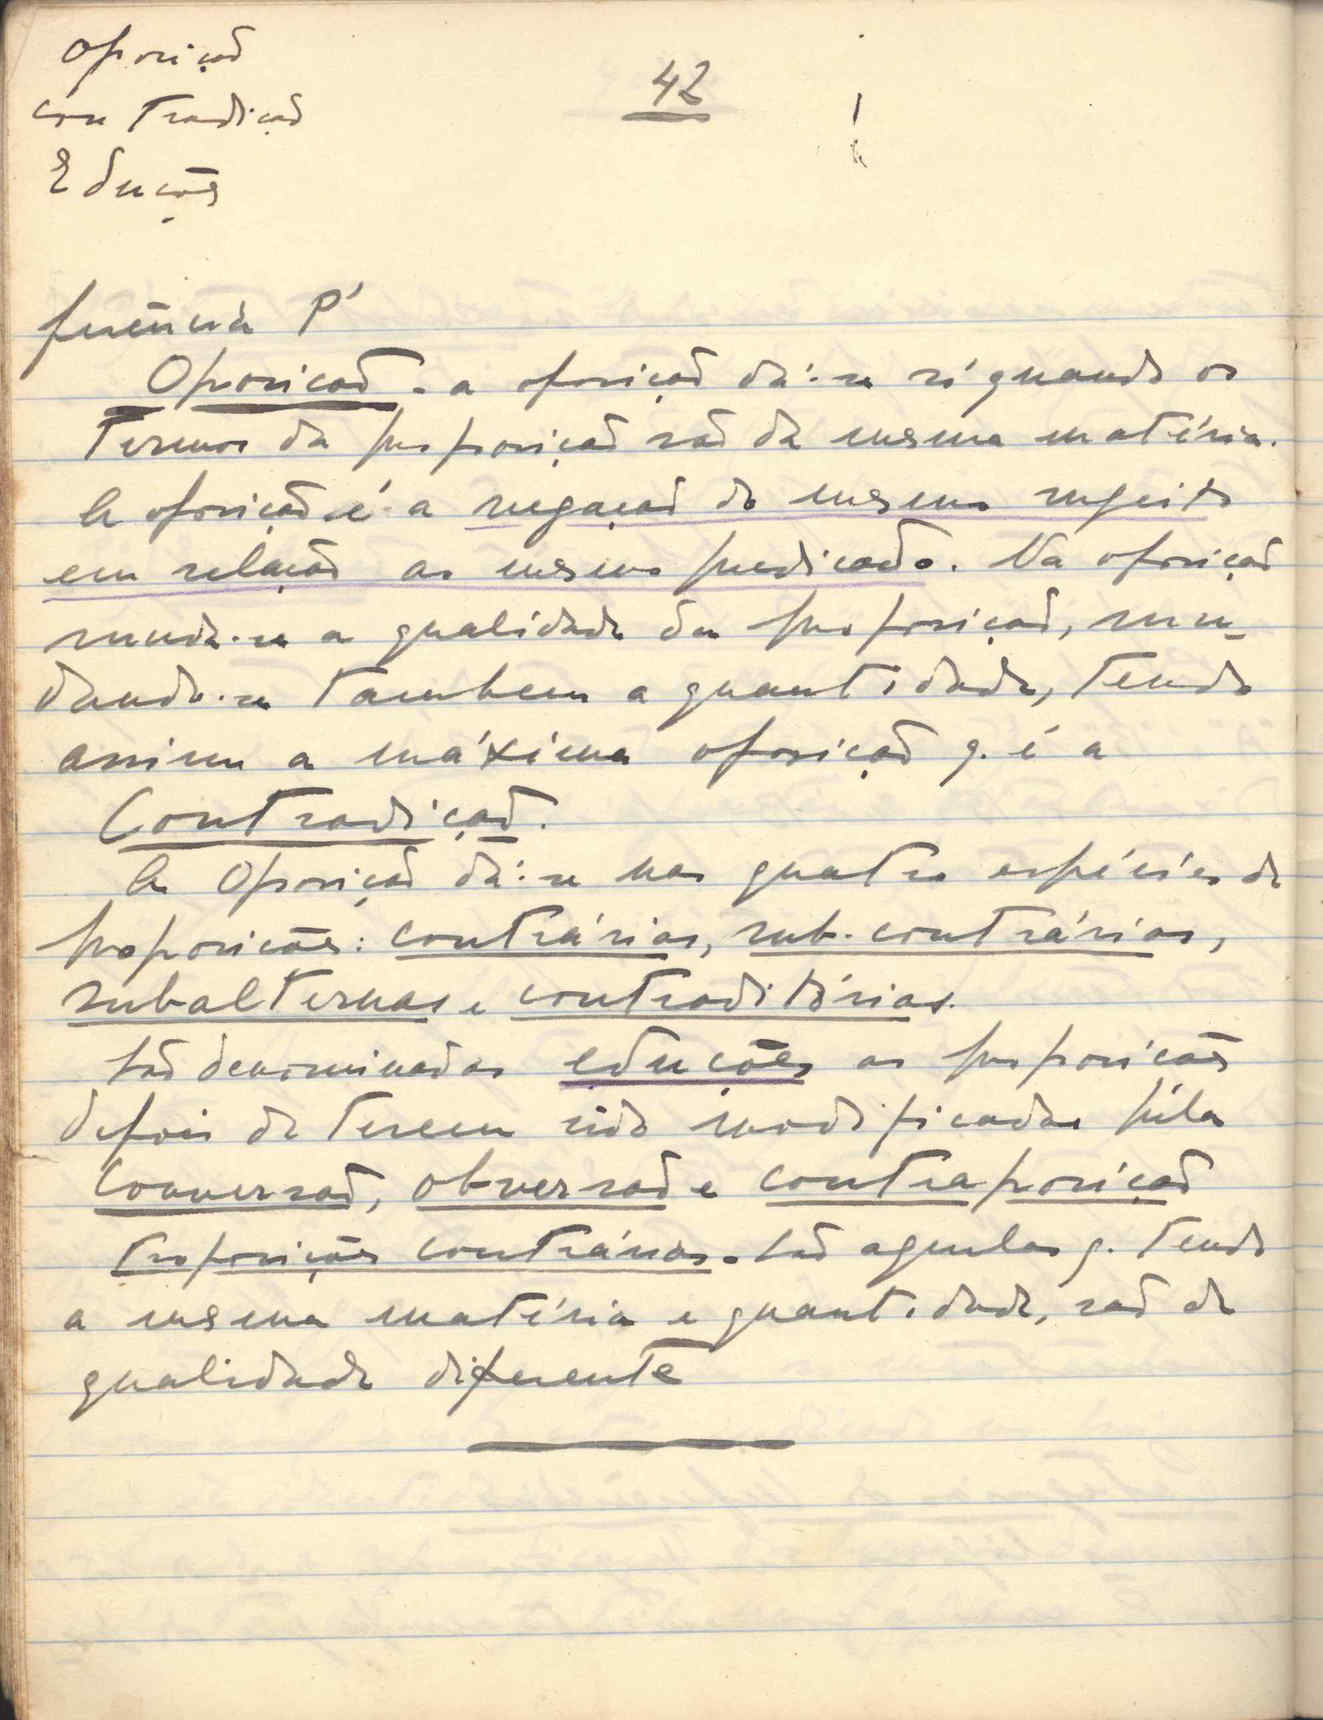 Oposição
contradição
Educões
42
ferência P'
Oposicão - a oposição dá-se só quando os
termos da proposição são da mesma matéria.
A oposição é a negação do mesmo sujeito
em relação ao mesmo predicado. Na oposição
muda-se a qualidade da proposição, mu-
dando-se tambem a quantidade, tendo
assim a máxima oposição q. é a
Contradição.
A Oposição dá-se nas quatro espécies de
proposicões: contrárias, sub-contrárias,
subalternas e contraditórias.
São denominadas educões as proposicões
depois de terem sido modificadas pela
Conversão, obversão e contraposição
Proposições contrárias. São aquelas q. tendo
a mesma matéria e quantidade, são de
qualidade diferente